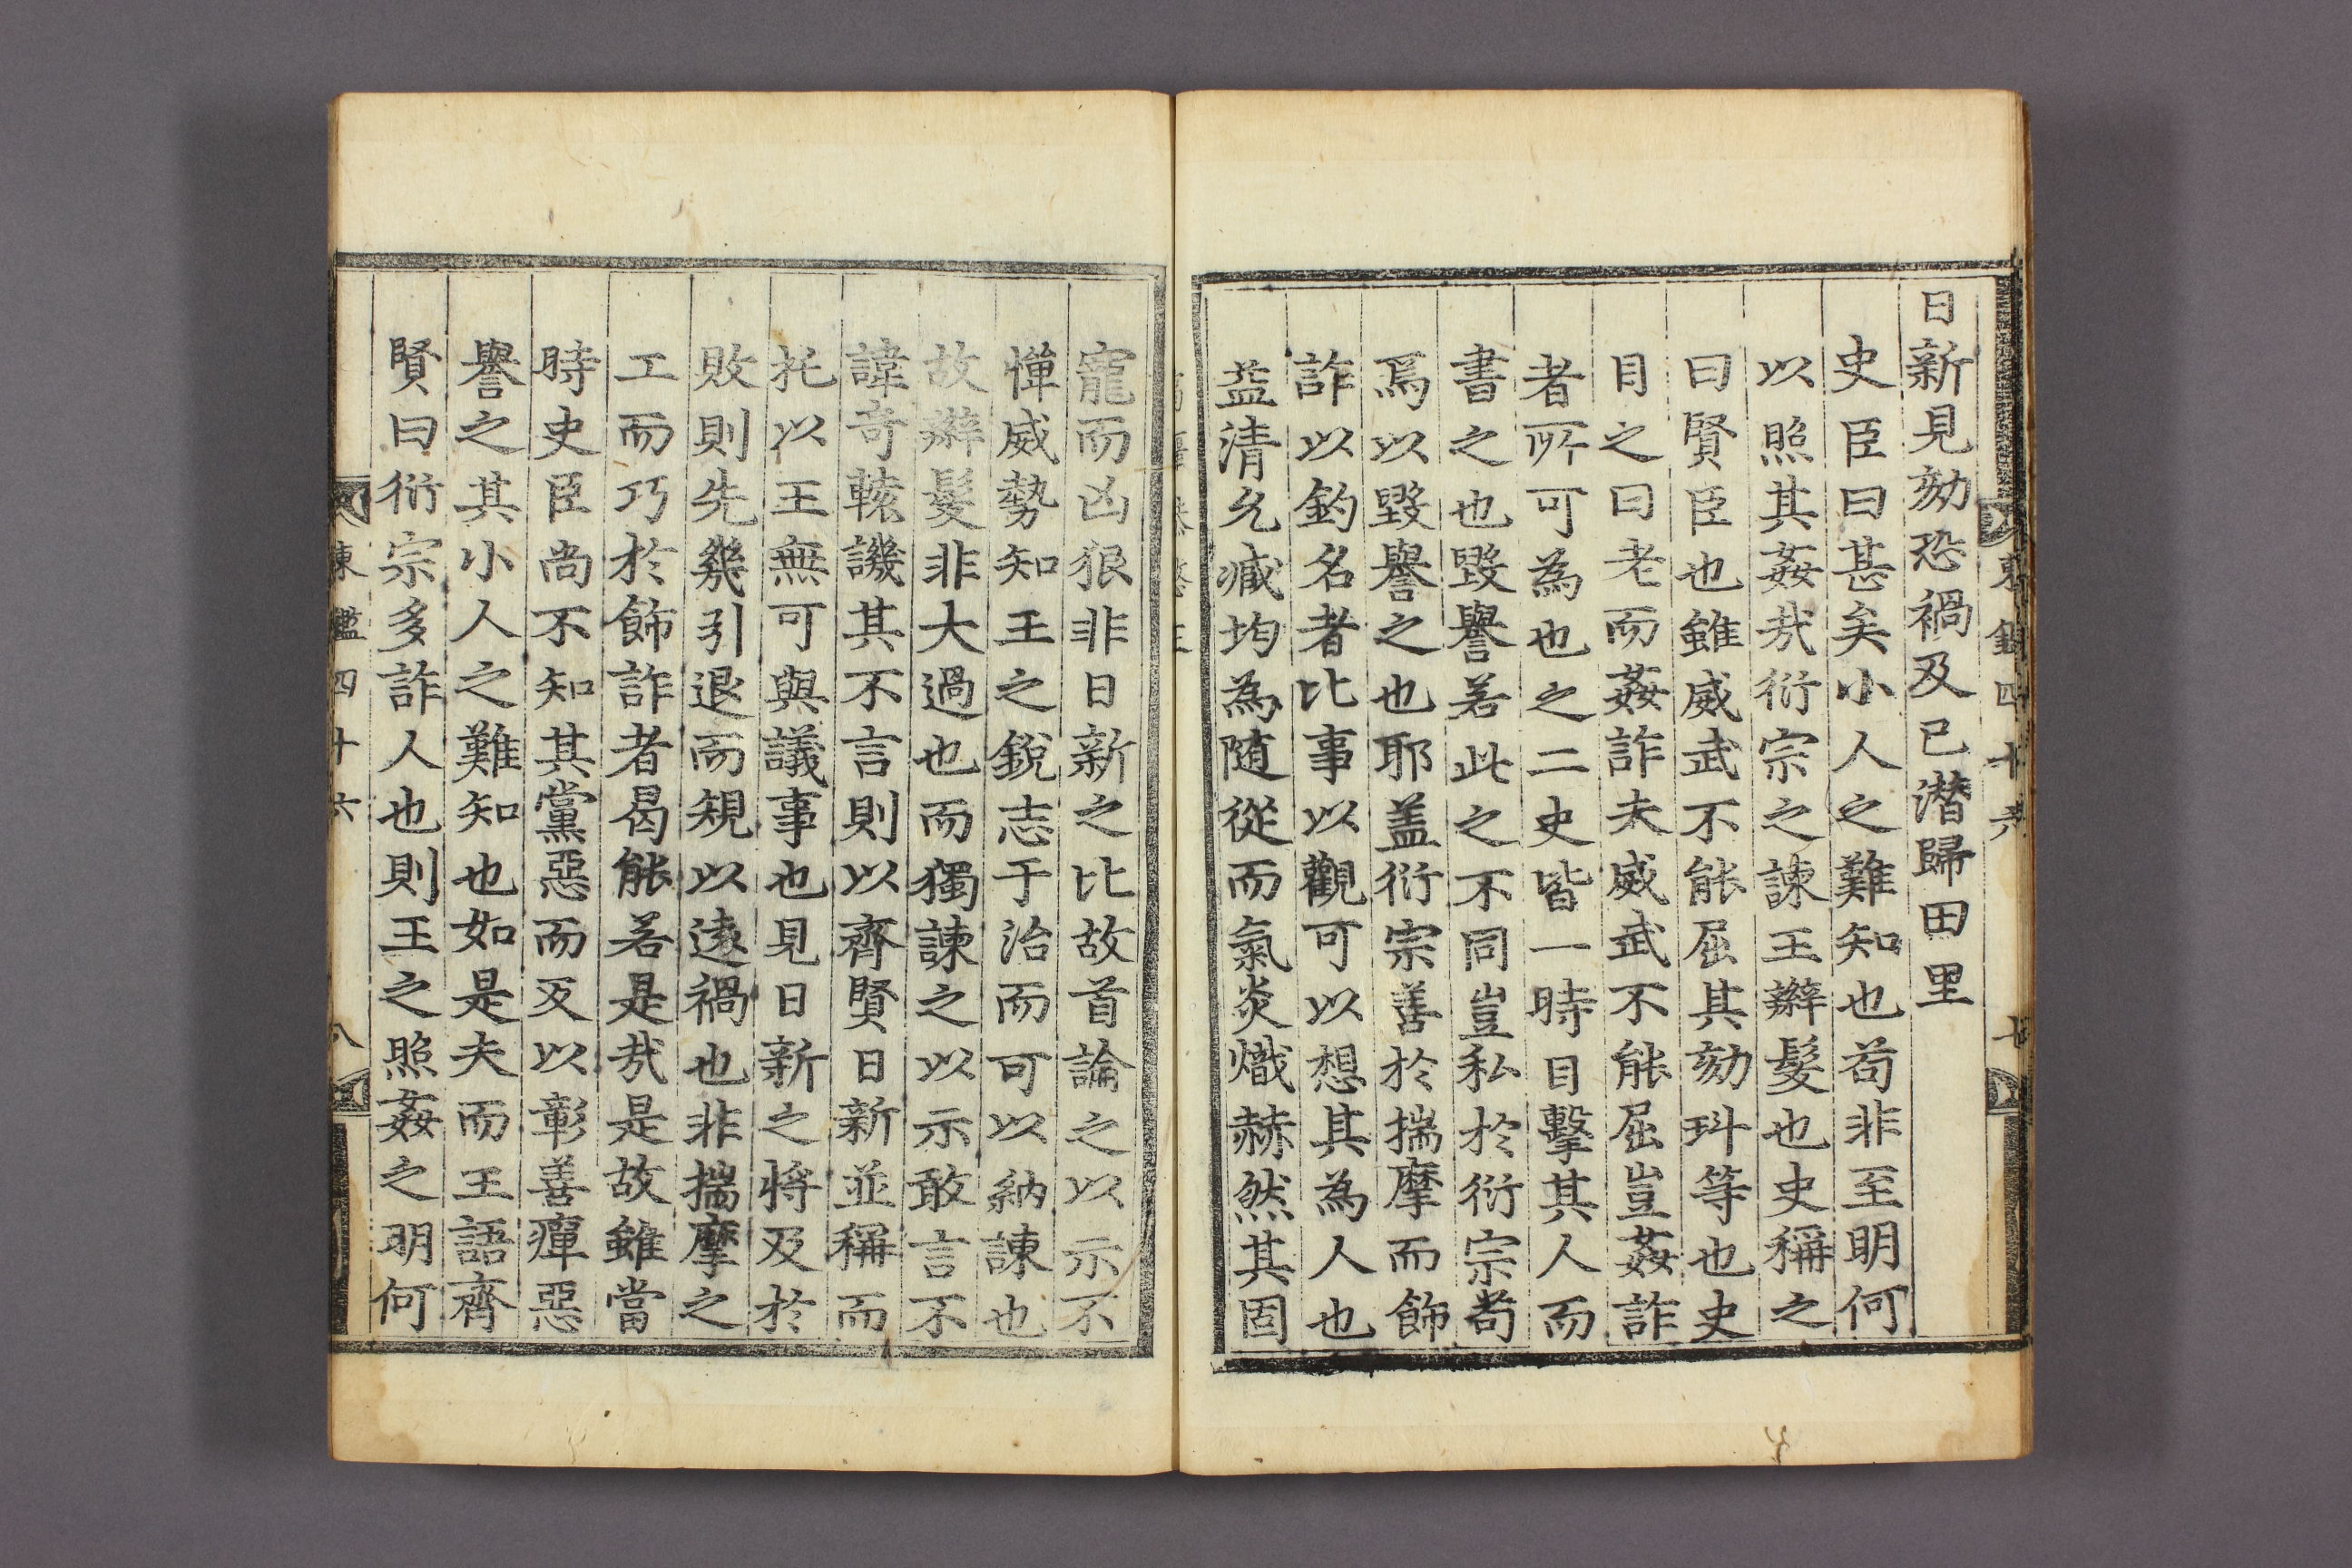 東鑑四十六 七
日新見劾恐禍及已潛歸田里
史臣曰甚矣小人之難知也苟非至明何
以照其姦㢤衍宗之諫王辮髮也史稱之
曰賢臣也雖威武不能屈其劾玶等也史
目之曰老而姦詐夫威武不能屈豈姦詐
者所可為也之二史皆一時目擊其人而
書之也毀譽若此之不同豈私於衍宗苟
焉以毀譽之也耶盖衍宗善於揣摩而飾
詐以釣名者比事以觀可以想其為人也
益清允臧均為随從而氣炎熾赫然其固
寵而凶狠非日新之比故首論之以示不
憚威勢知王之銳志于治而可以納諫也
故辮髮非大過也而獨諫之以示敢言不
諱竒轅譏其不言則以齊賢日新並稱而
托以王無可與議事也見日新之將及於
敗則先㡬引退而䂓以遠禍也非揣摩之
工而巧於飾詐者曷能若是㢤是故雖當
時史臣尚不知其黨惡而反以彰善癉惡
譽之其小人之難知也如是夫而王語齊
賢曰衍宗多詐人也則王之照姦之明何
東鑑四十六 八